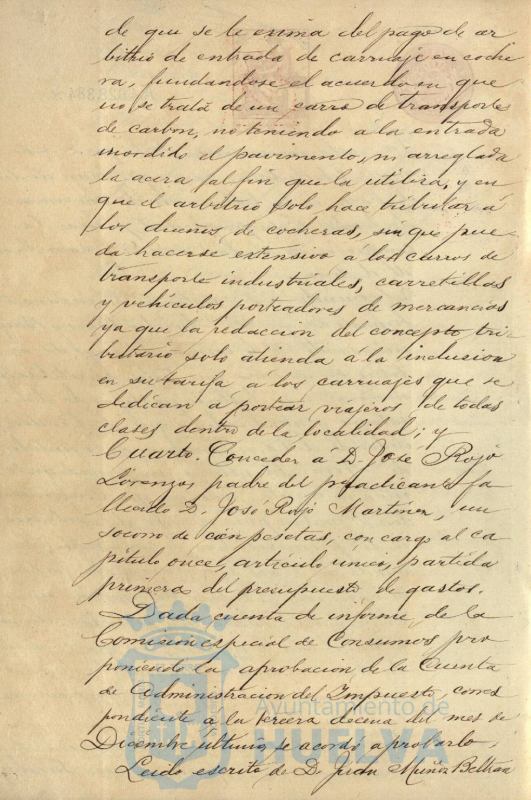 de que se le exima del pago de ar
bitrio de entrada de carruaje en coche
ra, fundandose el acuerdo en que
no se trata de un carro de transportes
de carbon, no teniendo á la entrada
mordido el pavimento, ni arreglada
la acera al fin que la utiliza, y en
que el arbitrio solo hace tributar á
los dueños de cocheras, sin que pue-
da hacerse extensivo á los carros de
transporte industriales, carretillas
y vehículos porteadores de mercancias
ya que la redaccion del concepto tri-
butario solo atienda á la inclusion
en su tarifa á los carruajes que se
dedican á portear viajeros de todas
clases dentro de la localidad; y
Cuarto. Conceder á D. José Rojo
Lorenzo, padre del practicante fa
llecido D. José Rojo Martinez, un
socorro de cien pesetas, con cargo al ca
pítulo once, artículo único, partida
primera del presupuesto de gastos.
Dada cuenta de informe de la
Comision especial de Consumos pro
poniendo la aprobacion de la Cuenta
de Administracion del Impuesto, corres
pondiente á la tercera decena del mes de
Diciembre último, se acordó aprobarlo.
Leido escrito de D. Juan Muñoz Beltran
Ayuntamiento de
HUELVA